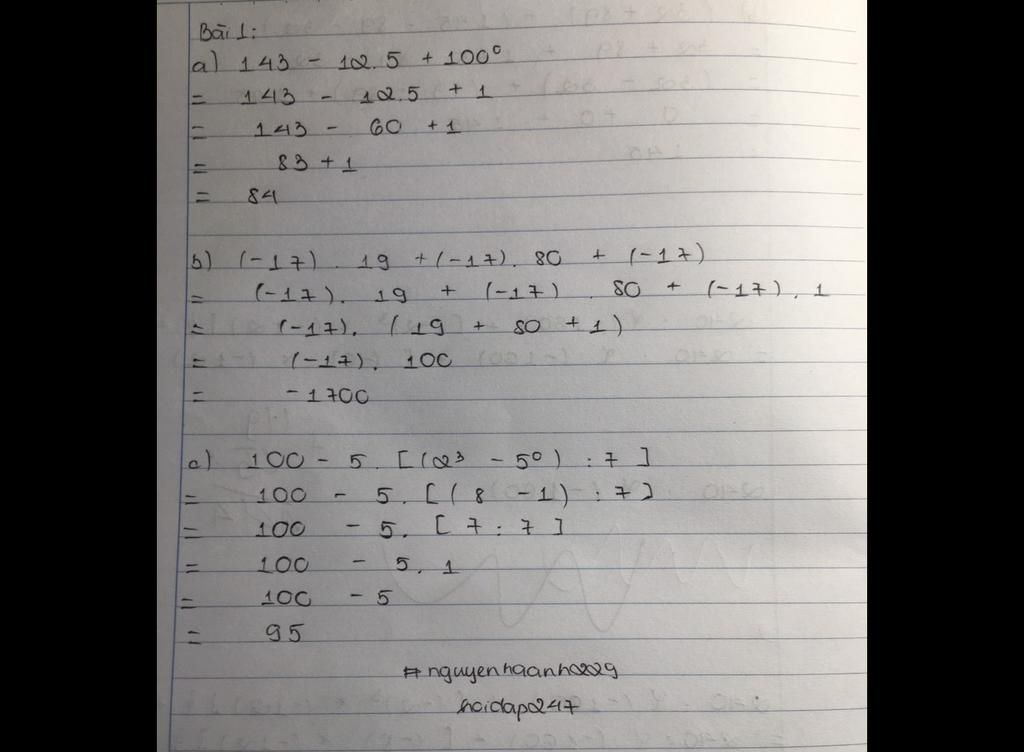 Bài 1:
a) 143 - 12.5 + 100⁰
= 143 - 12.5 + 1
= 143 - 60 + 1
= 83 + 1
= 84
b) (-17) . 19 + (-17) . 80 + (-17)
= (-17) . 19 + (-17) . 80 + (-17) . 1
= (-17) . (19 + 80 + 1)
= (-17) . 100
= -1700
c) 100 - 5 . [(2³ - 5⁰) : 7]
= 100 - 5 . [(8 - 1) : 7]
= 100 - 5 . [7 : 7]
= 100 - 5 . 1
= 100 - 5
= 95
#nguyenhaanh2229
hoidap247